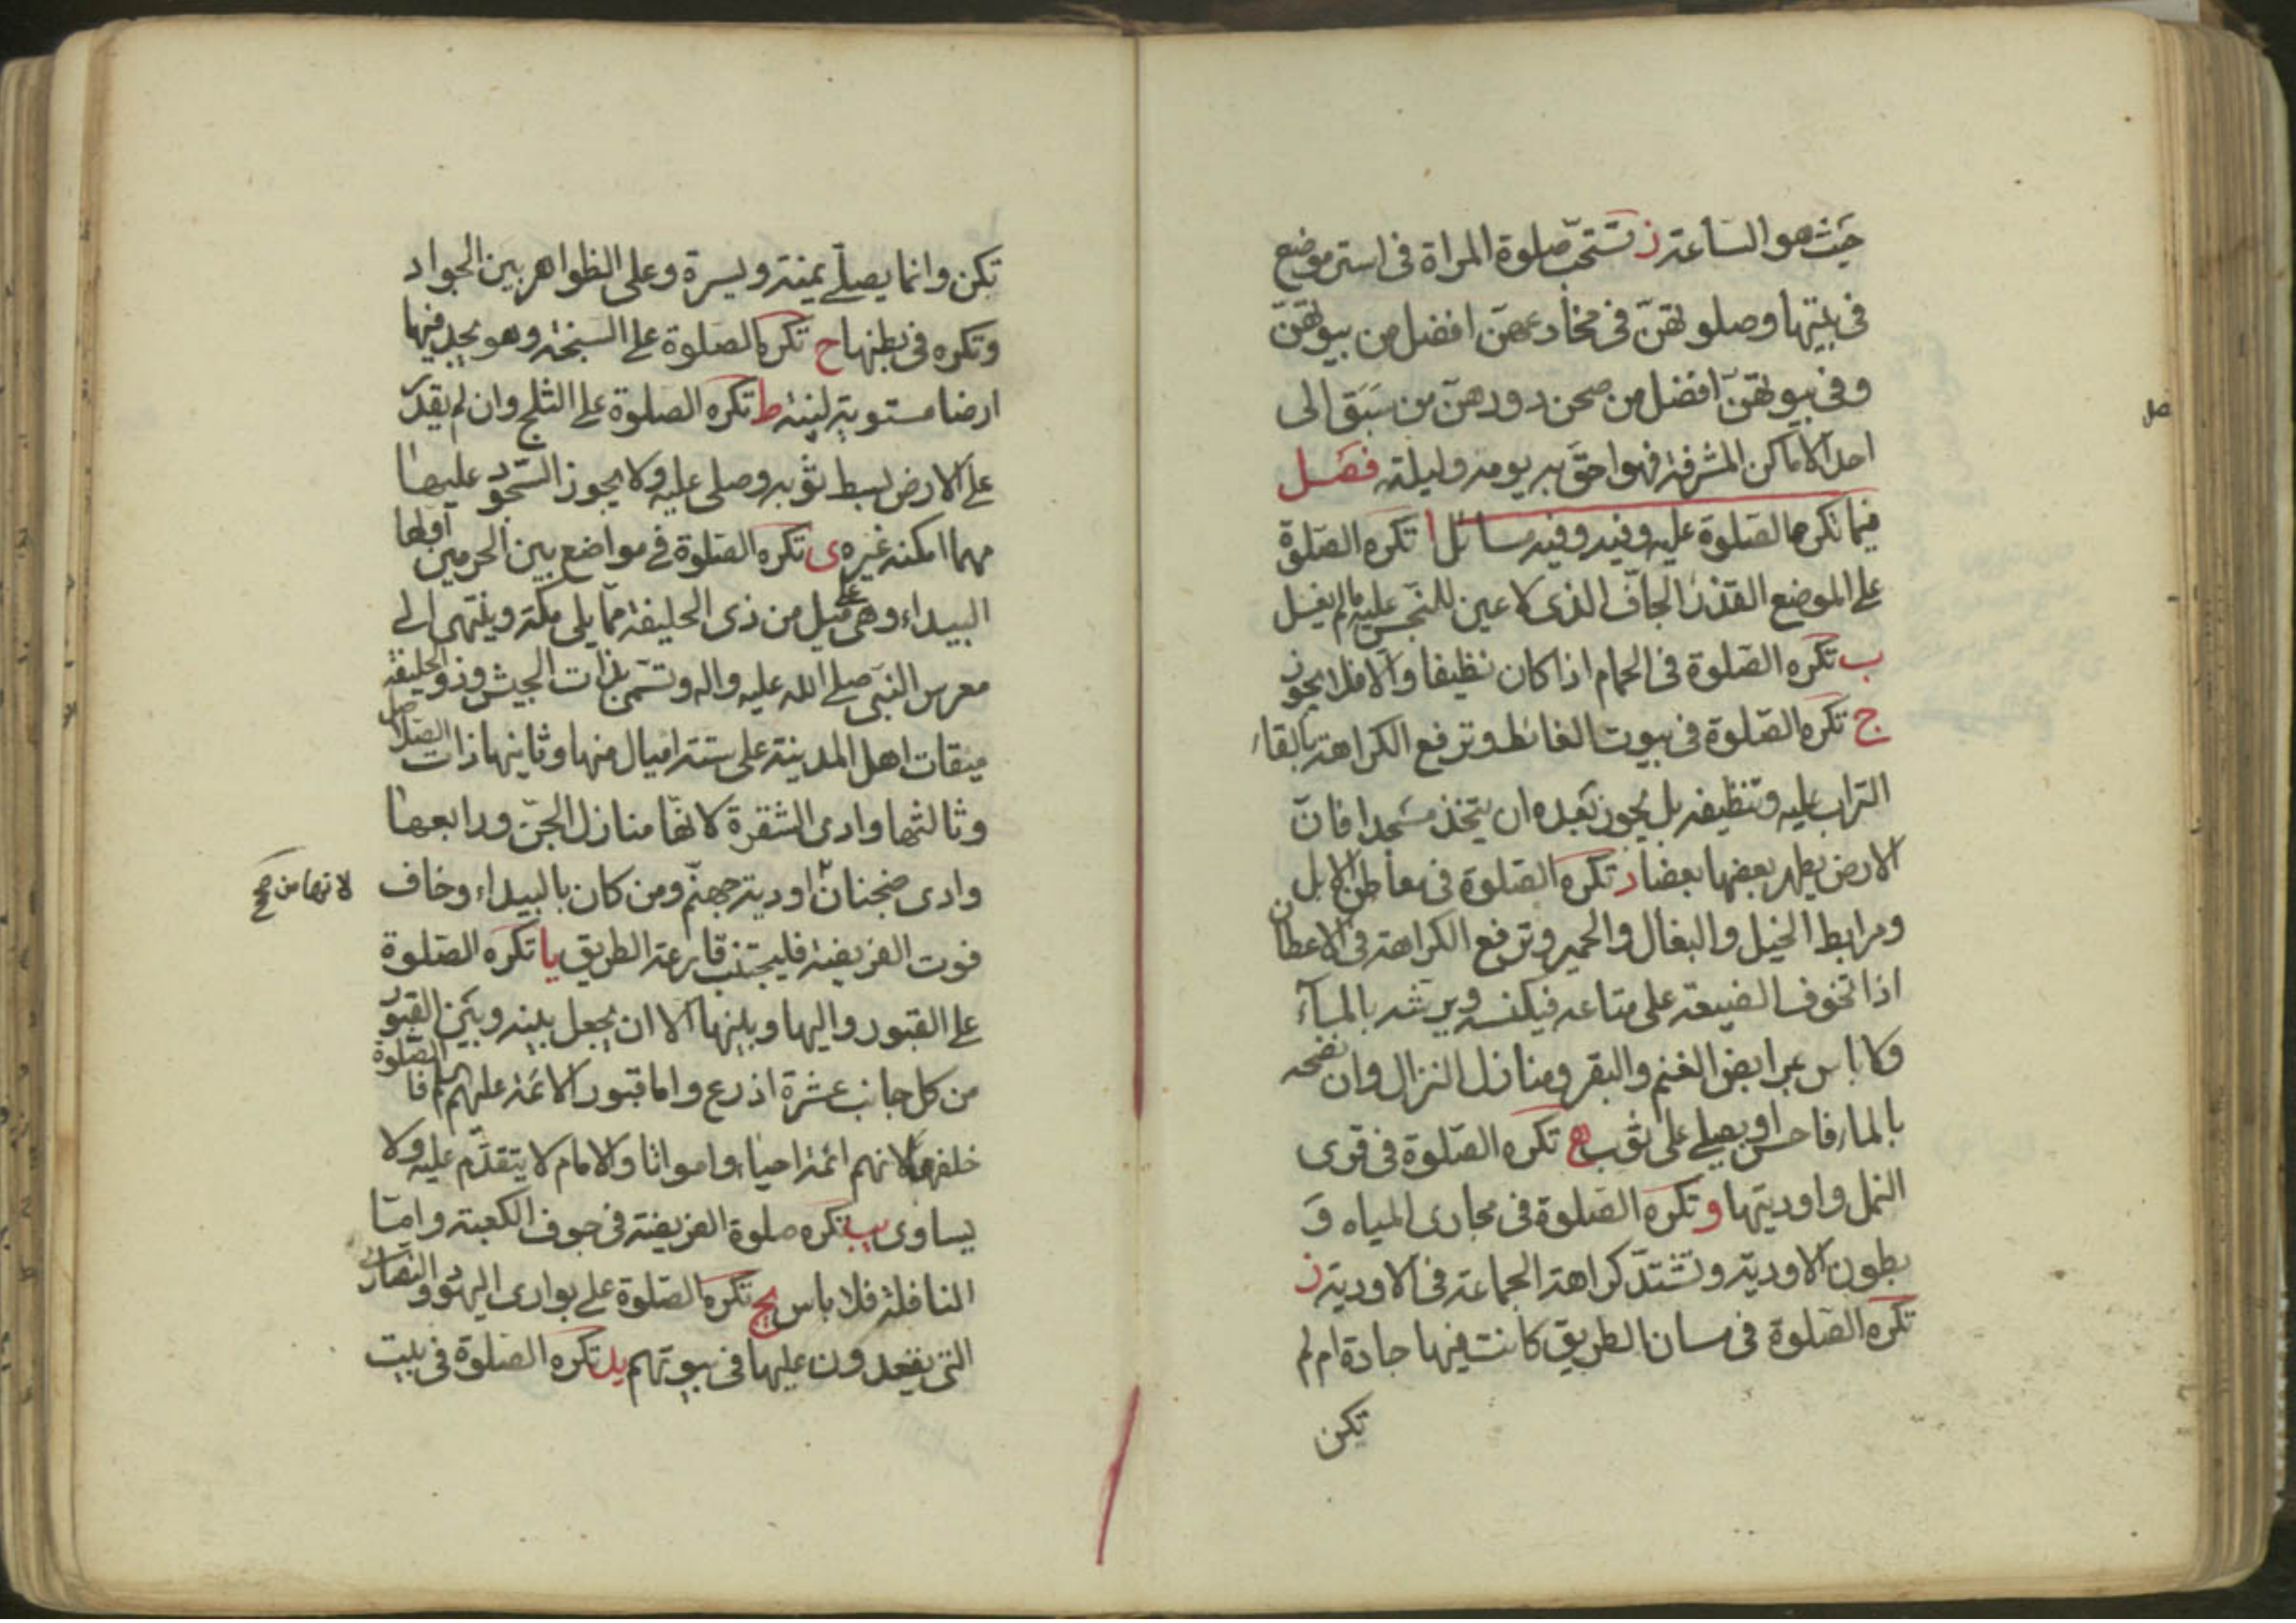 حيث هو الساعة ز تستحبّ صلوة المراة فى استر موضع
فى بيتها وصلوتهنّ فى مخادعهنّ افضل من بيوتهنّ
وفى بيوتهنّ افضل من صحن دورهنّ من سَبَق الى
احد الاماكن المشرفة فهو احقّ به يومه وليلته فصل
فيما تكره الصلوة عليه وفيه وفيه مسائل ا تكره الصلوة
على الموضع القذر الجافّ الذى لا عين للنجس عليه ما لم يغسل
ب تكره الصّلوة فى الحمام اذا كان نظيفا والا فلا يجوز
ج تكره الصّلوة فى بيوت الغائط وترفع الكراهة بالقاء
التراب عليه وتنظيفه بل يجوز بعده ان يتخذ مسجدا فانّ
الارض يطهر بعضها بعضا د تكره الصّلوة فى معاطن الابل
ومرابط الخيل والبغال والحمير وترفع الكراهة فى الاعطان
اذا تخوف الضيعة على متاعه فيكنسه ويرشه بالمآء
ولا باس بمرابض الغنم والبقر ومنازل النزال وان نضحه
بالماء فاحسن او يصلى على ثوب ه تكره الصّلوة فى قرى
النمل واوديتها و تكره الصّلوة فى مجارى المياه وَ
بطون الاودية وتشتدّ كراهة الجماعة فى الاودية ز
تكره الصّلوة فى مسان الطريق كانت فيها جادة ام لم
تكن
صل
تكن وانما يصلّى يمنة ويسرة وعلى الظواهر بين الجواد
وتكره فى بطنها ح تكره الصّلوة على السبخة وهو يجد فيها
ارضا مستوية لينة ط تكره الصلوة على الثلج وان لم يقدر
على الارض بسط ثوبه وصلى عليه ولا يجوز السّجود عليها
مهما امكنه غيره ى تكره الصّلوة فى مواضع بين الحرمين اولها
البيداء وهى على ميل من ذى الحليفة ممّا يلى مكّة وينتهى الى
معرس النّبى صلى الله عليه واله وتسمّى بذات الجيش وذو الحليفة
ميقات اهل المدينة على ستة اميال منها وثانيها ذات الصّلاصل
وثالثها وادى الشقرة لانّها منازل الجنّ ورابعها
وادى ضجنان اودية جهنّم ومن كان بالبيداء وخاف
لانها من صح
فوت الفريضة فليجتنب قارعة الطريق يا تكره الصّلوة
على القبور واليها وبينها الا ان يجعل بينه وبين القبور
من كل جانب عشرة اذرع واما قبور الائمة عليهم السلم فالصّلوة
خلفها لانهم ائمة احياء وامواتا والامام لا يتقدّم عليه ولا
يساوى يب تكره صلوة الفريضة فى جوف الكعبة وامّا
النافلة فلا باس يج تكره الصّلوة على بوارى اليهود والنصارى
التى يقعدون عليها فى بيوتهم يد تكره الصّلوة فى بيت